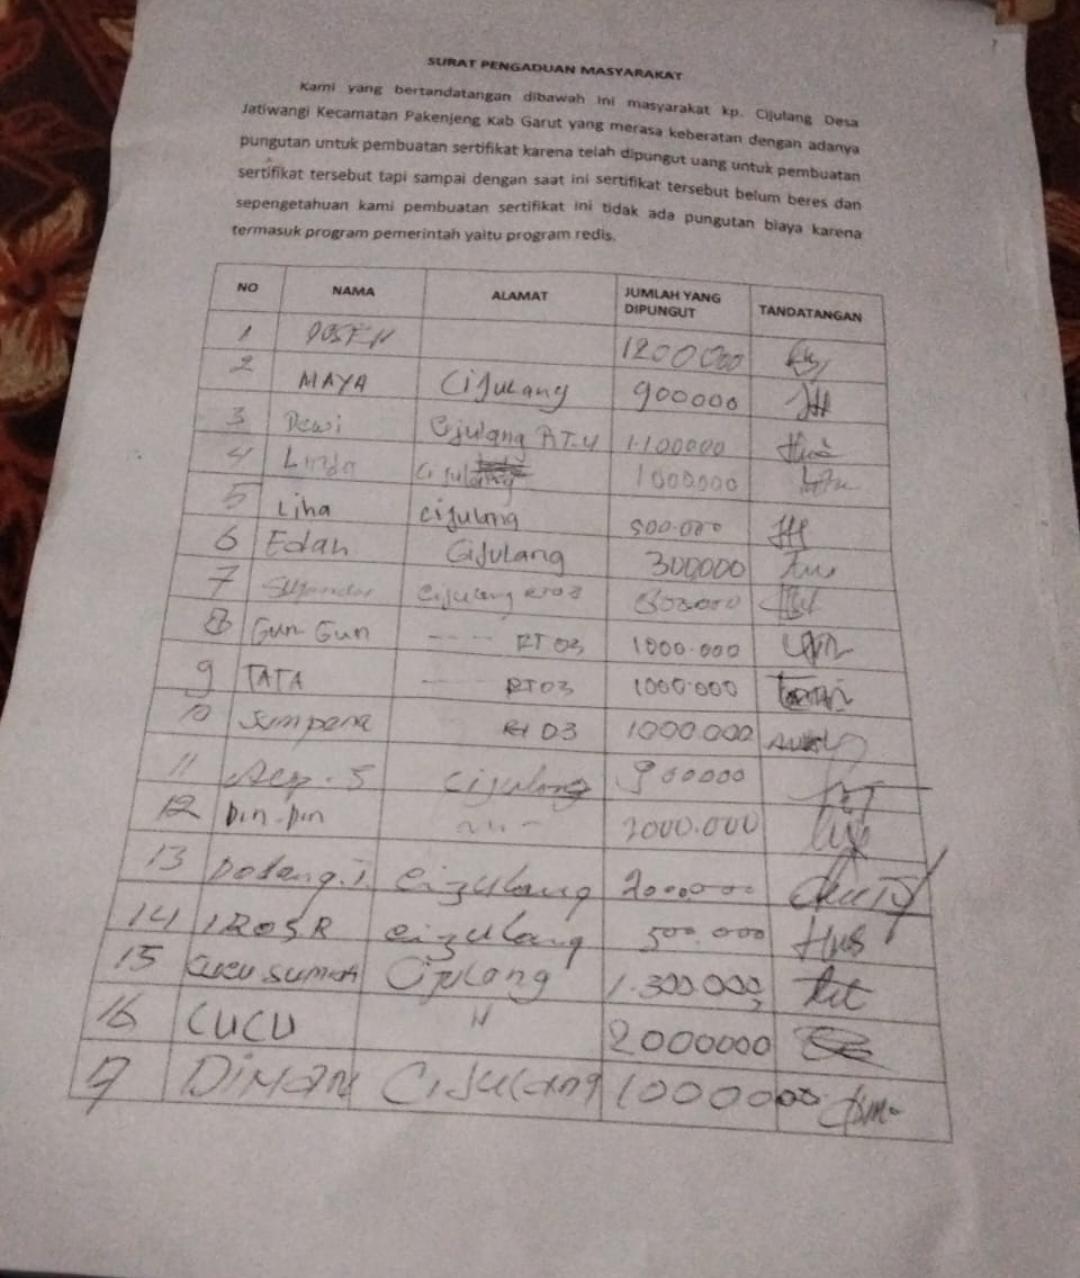 SURAT PENGADUAN MASYARAKAT
Kami yang bertandatangan dibawah ini masyarakat kp. Cijulang Desa
Jatiwangi Kecamatan Pakenjeng Kab Garut yang merasa keberatan dengan adanya
pungutan untuk pembuatan sertifikat karena telah dipungut uang untuk pembuatan
sertifikat tersebut tapi sampai dengan saat ini sertifikat tersebut belum beres dan
sepengetahuan kami pembuatan sertifikat ini tidak ada pungutan biaya karena
termasuk program pemerintah yaitu program redis.
NO NAMA ALAMAT JUMLAH YANG DIPUNGUT TANDATANGAN
1 1200000
2 MAYA Cijulang 900000
3 Dewi Cijulang RT.4 1.100000
4 Linda Cijulang 1000000
5 Liha cijulang 500.000
6 Edah Cijulang 300000
7 Cijulang RT03
8 Gun Gun RT 03 1000.000
9 TATA RT03 1000.000
10 Sumpena Rt 03 1000.000
11 Cijulang 900000
12 Din-Din 2000.000
13 Dadang.I cizulang 2000000
14 IROS R cizulang 500.000
15 Cucu sumati Cijulang 1.300.000
16 CUCU 2000000
17 DiMAN CiJulang 1000000